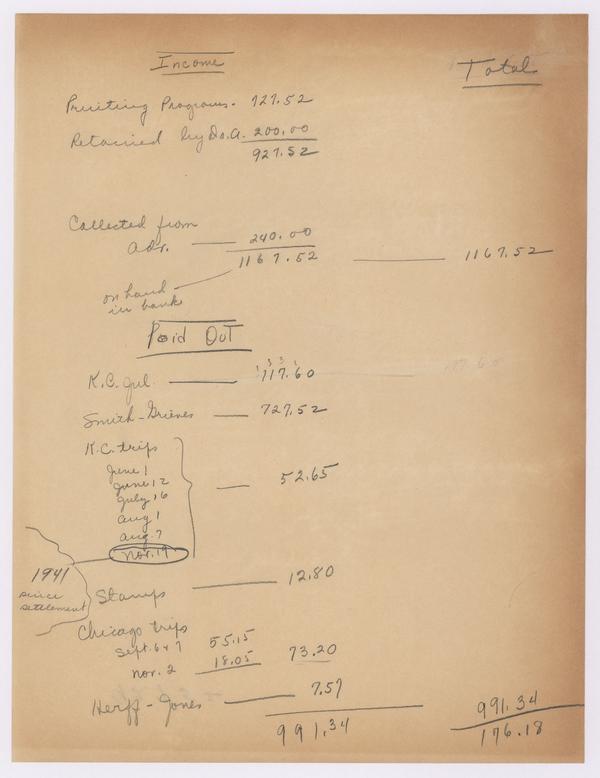 Income
Total
Printing Programs. 727.52
Retained by Do. A. 200.00
927.52
Collected from
Adv. — 240.00
1167.52 — 1167.52
on hand
in bank
Paid Out
K.C. Jul. — 117.60
Smith-Grieves — 727.52
K.C. trips
June 1
June 12
July 16
Aug 1
Aug. 7
Nov. 19
52.65
1941
since
settlement
Stamps — 12.80
Chicago trips
Sept. 6 & 7 55.15
Nov. 2 18.05 73.20
Herff-Jones — 7.57
991.34 991.34
176.18